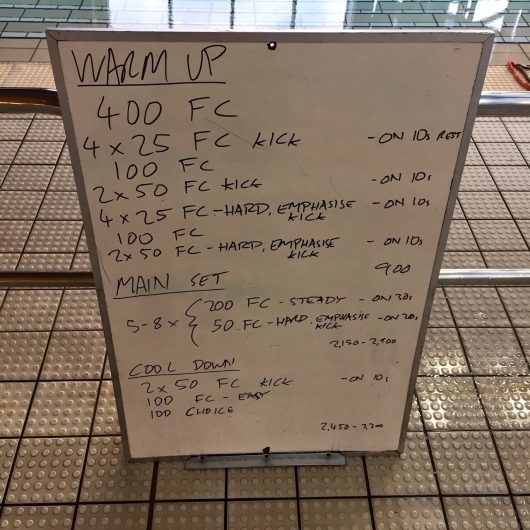 WARM UP
400 FC
4 x 25 FC KICK - ON 10s REST
100 FC
2 x 50 FC KICK - ON 10s
4 x 25 FC - HARD, EMPHASISE KICK - ON 10s
100 FC
2 x 50 FC - HARD, EMPHASISE KICK - ON 10s
900
MAIN SET
5-8 x { 200 FC - STEADY - ON 30s
50 FC - HARD EMPHASISE KICK - ON 20s
2,150 - 2,900
COOL DOWN
2 x 50 FC KICK - ON 10s
100 FC - EASY
100 CHOICE
2,450 - 3,200